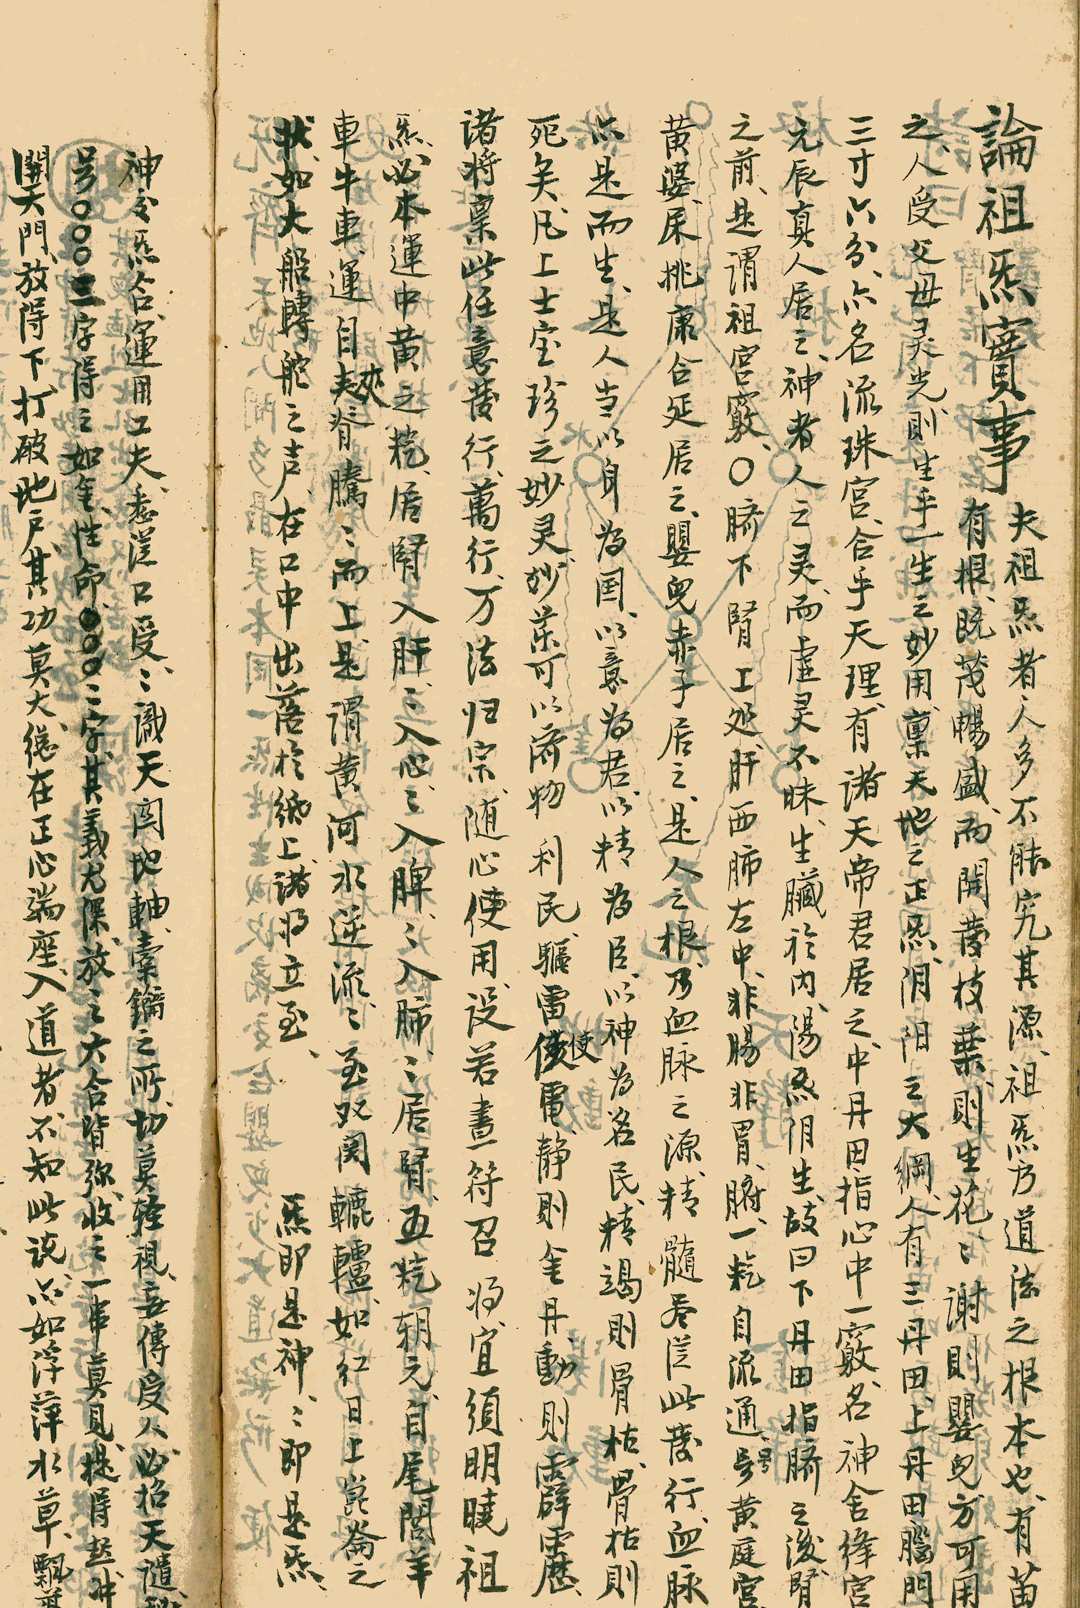 論祖炁實事
夫祖炁者人多不能究其源、祖炁乃道法之根本也、有苗
有根、既茂暢盛、而開發枝葉、則生花、〻謝則嬰兒、方可用
之、人受父母灵光、則生乎一生之妙用、稟天地之正炁、阴阳之大綱、人有三丹田、上丹田腦門
三寸六分、亦名流珠宮、合乎天理、有諸天帝君居之、中丹田指心中一竅、名神舍絳宮
元辰真人居之、神者人之灵、而虛灵不昧、生臟於内、陽炁阴生、故曰下丹田指臍之後、腎
之前、是謂祖宮竅、〇臍下腎上処、肝西肺左中、非腸非胃、腑一炁自流通、号黄庭宮
黄婆、床挑康合延居之、嬰兒赤子居之、是人之根、乃血脉之源、精髓吞从此發行、血脉
亦是而生、是人当以身為国、以意為君、以精為臣、以神為名民、精竭則骨枯、骨枯則
死矣、凡上士宝珍之妙灵、妙藥可以济物利民、驅雷使電、静則金丹、動則霹靂、
諸将稟此任意發行、萬行、万法归宗、随心使用、设若畫符召将、宜須明曉祖
炁、必本運中黄之炁、居腎入肝、〻入心、〻入脾、〻入肺、〻居腎、五炁朝元、自尾閭羊
車牛車、運自夾脊騰〻而上、是謂黄河水逆流、〻至双関轆轤、如红日上崑崙之
状、如大船轉舵之声、在口中出落於紙上、諸将立至、 炁即是神、〻即是炁
神令炁合、運用工夫、悉從口受、〻識天関地軸、橐籥之所、切莫轻視妄傳受人、必招天譴、
号〇〇〇三字得之如金、性命、〇〇〇二字、其義尤深、放之六合皆弥、收之一串莫見、提得起、冲
開天門、放得下、打破地户、其功莫大、總在正心端座、入道者不知此说、亦如浮萍水草、飄